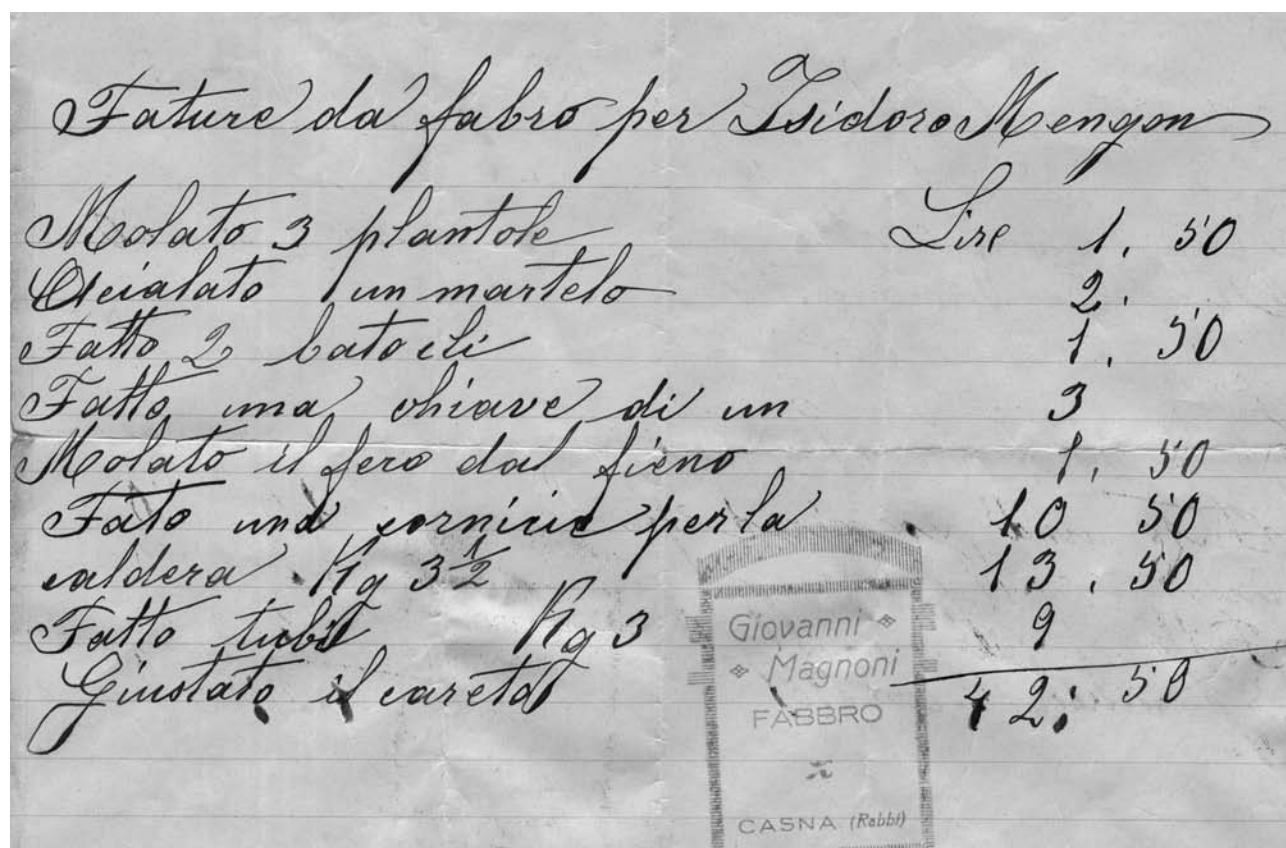 Fature da fabro per Isidoro Mengon
Molato 3 plantole Lire 1. 50
Acialato un martelo 2.
Fatto 2 batocli 1. 50
Fatto una chiave di un 3
Molato il fero dal fieno 1. 50
Fato una cornicie per la 10 50
caldera Kg 3 1/2 13. 50
Fatto tubi Kg 3 9
Giustato il careto 42: 50
Giovanni
Magnoni
FABBRO
CASNA (Rabbi)